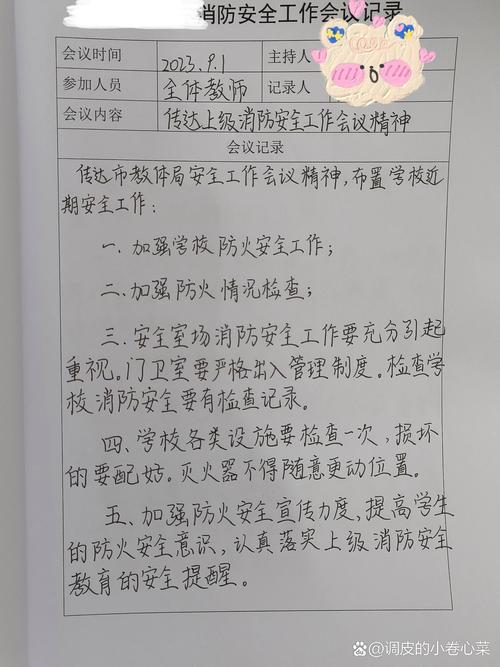 消防安全工作会议记录
会议时间 2023.9.1 主持人
参加人员 全体教师 记录人
会议内容 传达上级消防安全工作会议精神
会议记录
传达市教体局安全工作会议精神,布置学校近
期安全工作:
一.加强学校防火安全工作;
二.加强防火情况检查;
三.安全室场消防安全工作要充分引起
重视。门卫室要严格出入管理制度。检查学
校消防安全要有检查记录。
四、学校各类设施要检查一次,损坏
的要配姑。灭火器不得随意更动位置。
五、加强防火安全宣传力度,提高学生
的防火安全意识,认真落实上级消防安全
教育的安全提醒。
@调皮的小卷心菜